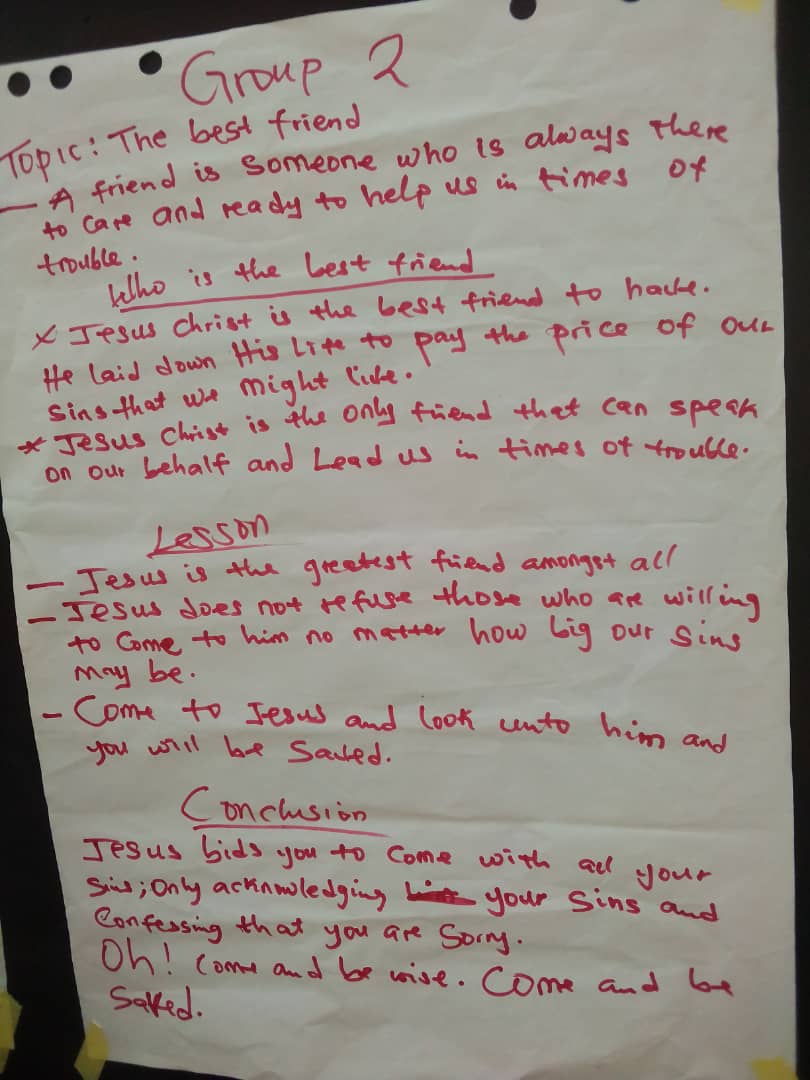 Group 2
Topic: The best friend
— A friend is someone who is always there
to care and ready to help us in times of
trouble.
Who is the best friend
x Jesus Christ is the best friend to have.
He laid down His Life to pay the price of our
Sins that we might live.
* Jesus Christ is the only friend that can speak
on our behalf and Lead us in times of trouble.
Lesson
— Jesus is the greatest friend amongst all
— Jesus does not refuse those who are willing
to Come to him no matter how big our Sins
may be.
- Come to Jesus and look unto him and
you will be Saved.
Conclusion
Jesus bids you to Come with all your
Sins; Only acknowledging your Sins and
Confessing that you are Sorry.
Oh! Come and be wise. Come and be
Saved.